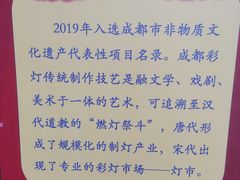 2019年入选成都市非物质文
化遗产代表性项目名录。成都彩
灯传统制作技艺是融文学、戏剧、
美术于一体的艺术，可追溯至汉
代道教的“燃灯祭斗”，唐代形
成了规模化的制灯产业，宋代出
现了专业的彩灯市场——灯市。